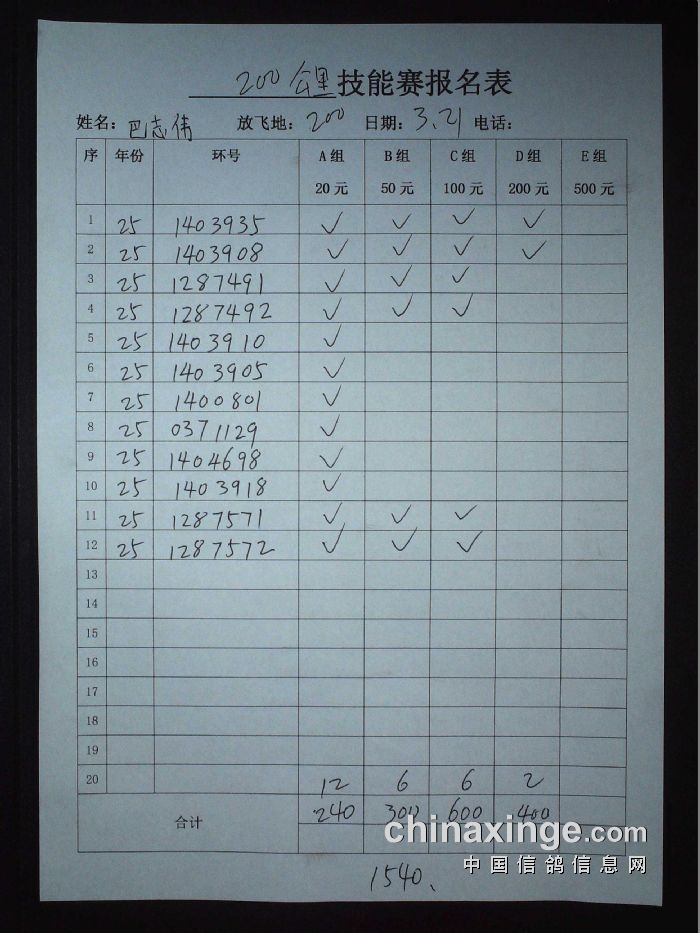 200公里技能赛报名表
姓名: 巴志伟 放飞地: 200 日期: 3.21 电话:
序 年份 环号 A组 B组 C组 D组 E组
20元 50元 100元 200元 500元
1 25 1403935 ✓ ✓ ✓ ✓
2 25 1403908 ✓ ✓ ✓ ✓
3 25 1287491 ✓ ✓ ✓
4 25 1287492 ✓ ✓ ✓
5 25 1403910 ✓
6 25 1403905 ✓
7 25 1400801 ✓
8 25 0371129 ✓
9 25 1404698 ✓
10 25 1403918 ✓
11 25 1287571 ✓ ✓ ✓
12 25 1287572 ✓ ✓ ✓
13
14
15
16
17
18
19
20 12 6 6 2
合计 240 300 600 400
chinaxinge.com
中国信鸽信息网
1540、